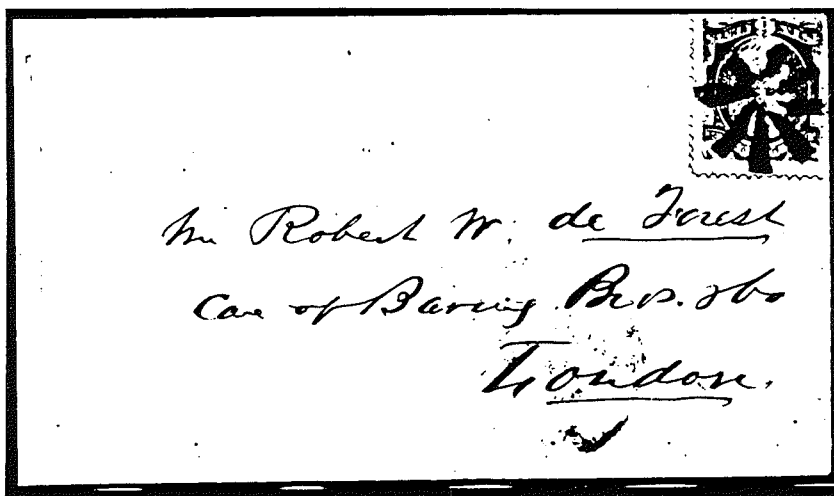 Mr Robert W. de Forest
Care of Baring Bros. & Co
London.